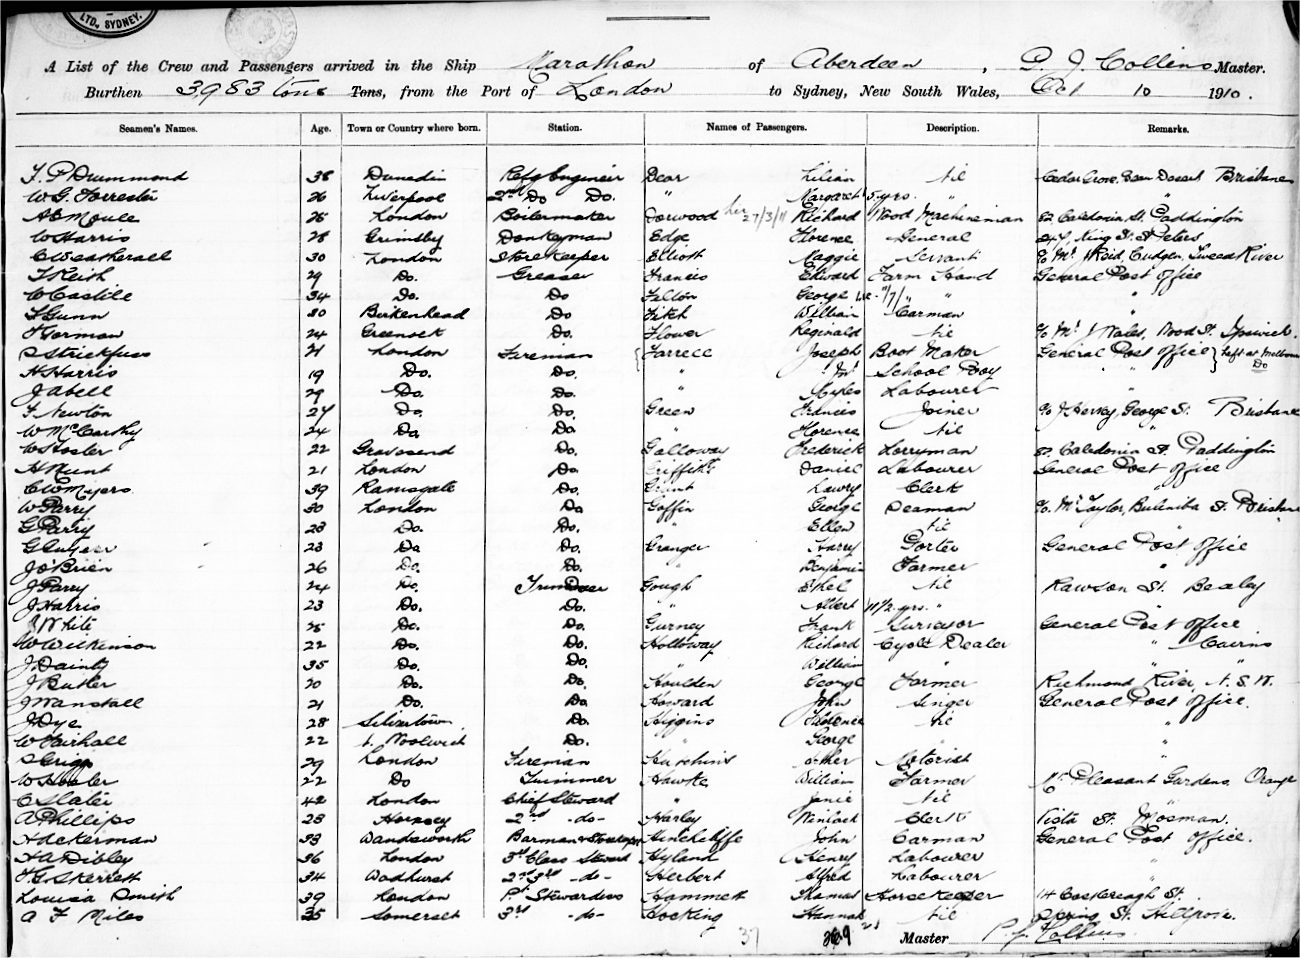 LTD., SYDNEY.
A List of the Crew and Passengers arrived in the Ship Marathon of Aberdeen, P. J. Collins Master.
Burthen 3983 tons Tons, from the Port of London to Sydney, New South Wales, Oct 10 1910.
Seamen's Names. Age. Town or Country where born. Station. Names of Passengers. Description. Remarks.
38 Dunedin Refg Engineer Dear Lilian nil Brisbane
W. G. Forrester 26 Liverpool 2nd Do Do. " Margaret 5 yrs. "
A E Moule 28 London Boilermaker Dorwood 27/3/11 Richard Wood Machineman 52 Caledonia St. Paddington
W Harris 28 Grimsby Donkeyman Edge Florence General 247, King St. St Peters
C Weatherall 30 London Storekeeper Elliott Maggie Servant c/o Mr Reid, Cudgen, Tweed River
T Keith 29 Do. Greaser Francis Edward Farm Hand General Post Office
C Castile 34 Do. Do Felton George " " "
Gunn 30 Birkenhead Do Fitch William Carman "
Gorman 24 Greenock Do. Flower Reginald nil c/o Mr J Wales, Wood St. Ipswich.
21 London Fireman Farrell Joseph Boot Maker General Post Office } Left at Melbourne
H Harris 19 Do. Do. " School Boy " " Do
J Abell 29 Do. Do. " Myles Labourer
F Newton 27 Do. Do. Green Francis Joiner c/o J Hersey, George St. Brisbane
W McCarthy 24 Do. Do " Florence nil
W Foster 22 Gravesend Do. Galloway Frederick Lorryman 52 Caledonia St. Paddington
H Hunt 21 London Do Griffiths Daniel Labourer General Post Office
C W Myers 39 Ramsgate Do. Grant Lawry Clerk "
W Parry 30 London Do Goffin George Seaman c/o Mr Taylor, Bulimba St. Brisbane
G Parry 23 Do. Do. " Ellen nil "
23 Do Do. Granger Harry Porter General Post Office
J O'Brien 26 Do. Do. " Benjamin Farmer "
J Parry 24 Do. Trimmer Gough Ethel nil Rawson St. Bexley
J Harris 23 Do. Do. " Albert 11/12 yrs. " "
White 28 Do. Do. Gurney Frank Surveyor General Post Office
W Wilkinson 22 Do. Do. Holloway Richard Cycle Dealer " Cairns
J Dainty 35 Do. Do. " William " " "
J Butler 20 Do. Do. Houlden George Farmer Richmond River, N. S. W.
J Wanstall 21 Do. Do. Howard John Singer General Post Office.
J Dye 28 Silvertown Do. Higgins Florence nil "
W Fairhall 22 N. Woolwich Do. " George " "
29 London Fireman Hutchins Arthur Motorist "
W Hooler 22 Do Trimmer Hawke William Farmer Mt Pleasant Gardens, Orange
C Slater 42 London Chief Steward " Janie nil
A Phillips 23 Hornsey 2nd -do- Harley Wenlock Clerk Vista St. Mosman.
H Ackerman 33 Wandsworth Barman & Storekeeper Hinchcliffe John Carman General Post Office.
H A Dibley 36 London 3rd Class Steward Hyland Henry Labourer "
H G Skerrett 34 Wadhurst 2nd 3rd -do- Herbert Alfred Labourer "
Louisa Smith 39 London Pt Stewardess Hammett Thomas Horsekeeper 14 St.
A F Miles 35 Somerset 3rd -do- Hocking Hannah nil Spring St. Hillgrove.
37 Master P. J. Collins.